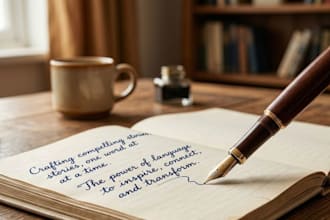 Crafting compelling stories,
stories, one word at
at a time.
The power of language
to inspire, connect,
and transform.